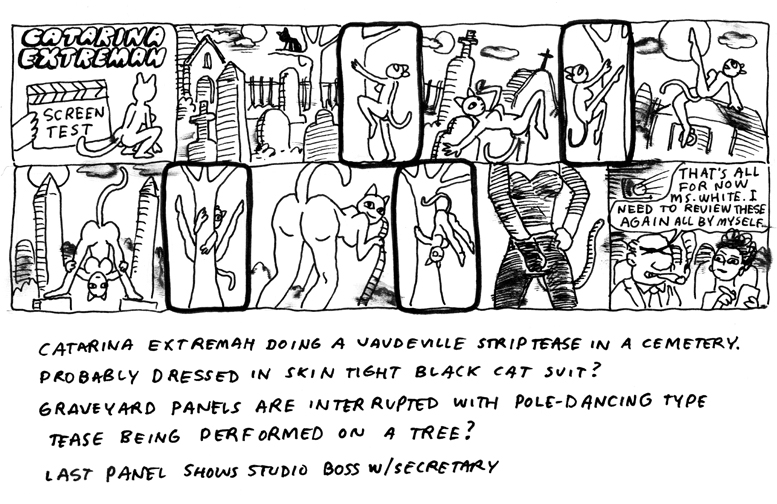 CATARINA
EXTREMAH
SCREEN
TEST
THAT'S ALL
FOR NOW
MS. WHITE. I
NEED TO REVIEW THESE
AGAIN ALL BY MYSELF...
CATARINA EXTREMAH DOING A VAUDEVILLE STRIPTEASE IN A CEMETERY.
PROBABLY DRESSED IN SKIN TIGHT BLACK CAT SUIT?
GRAVEYARD PANELS ARE INTERRUPTED WITH POLE-DANCING TYPE
TEASE BEING PERFORMED ON A TREE?
LAST PANEL SHOWS STUDIO BOSS W/SECRETARY